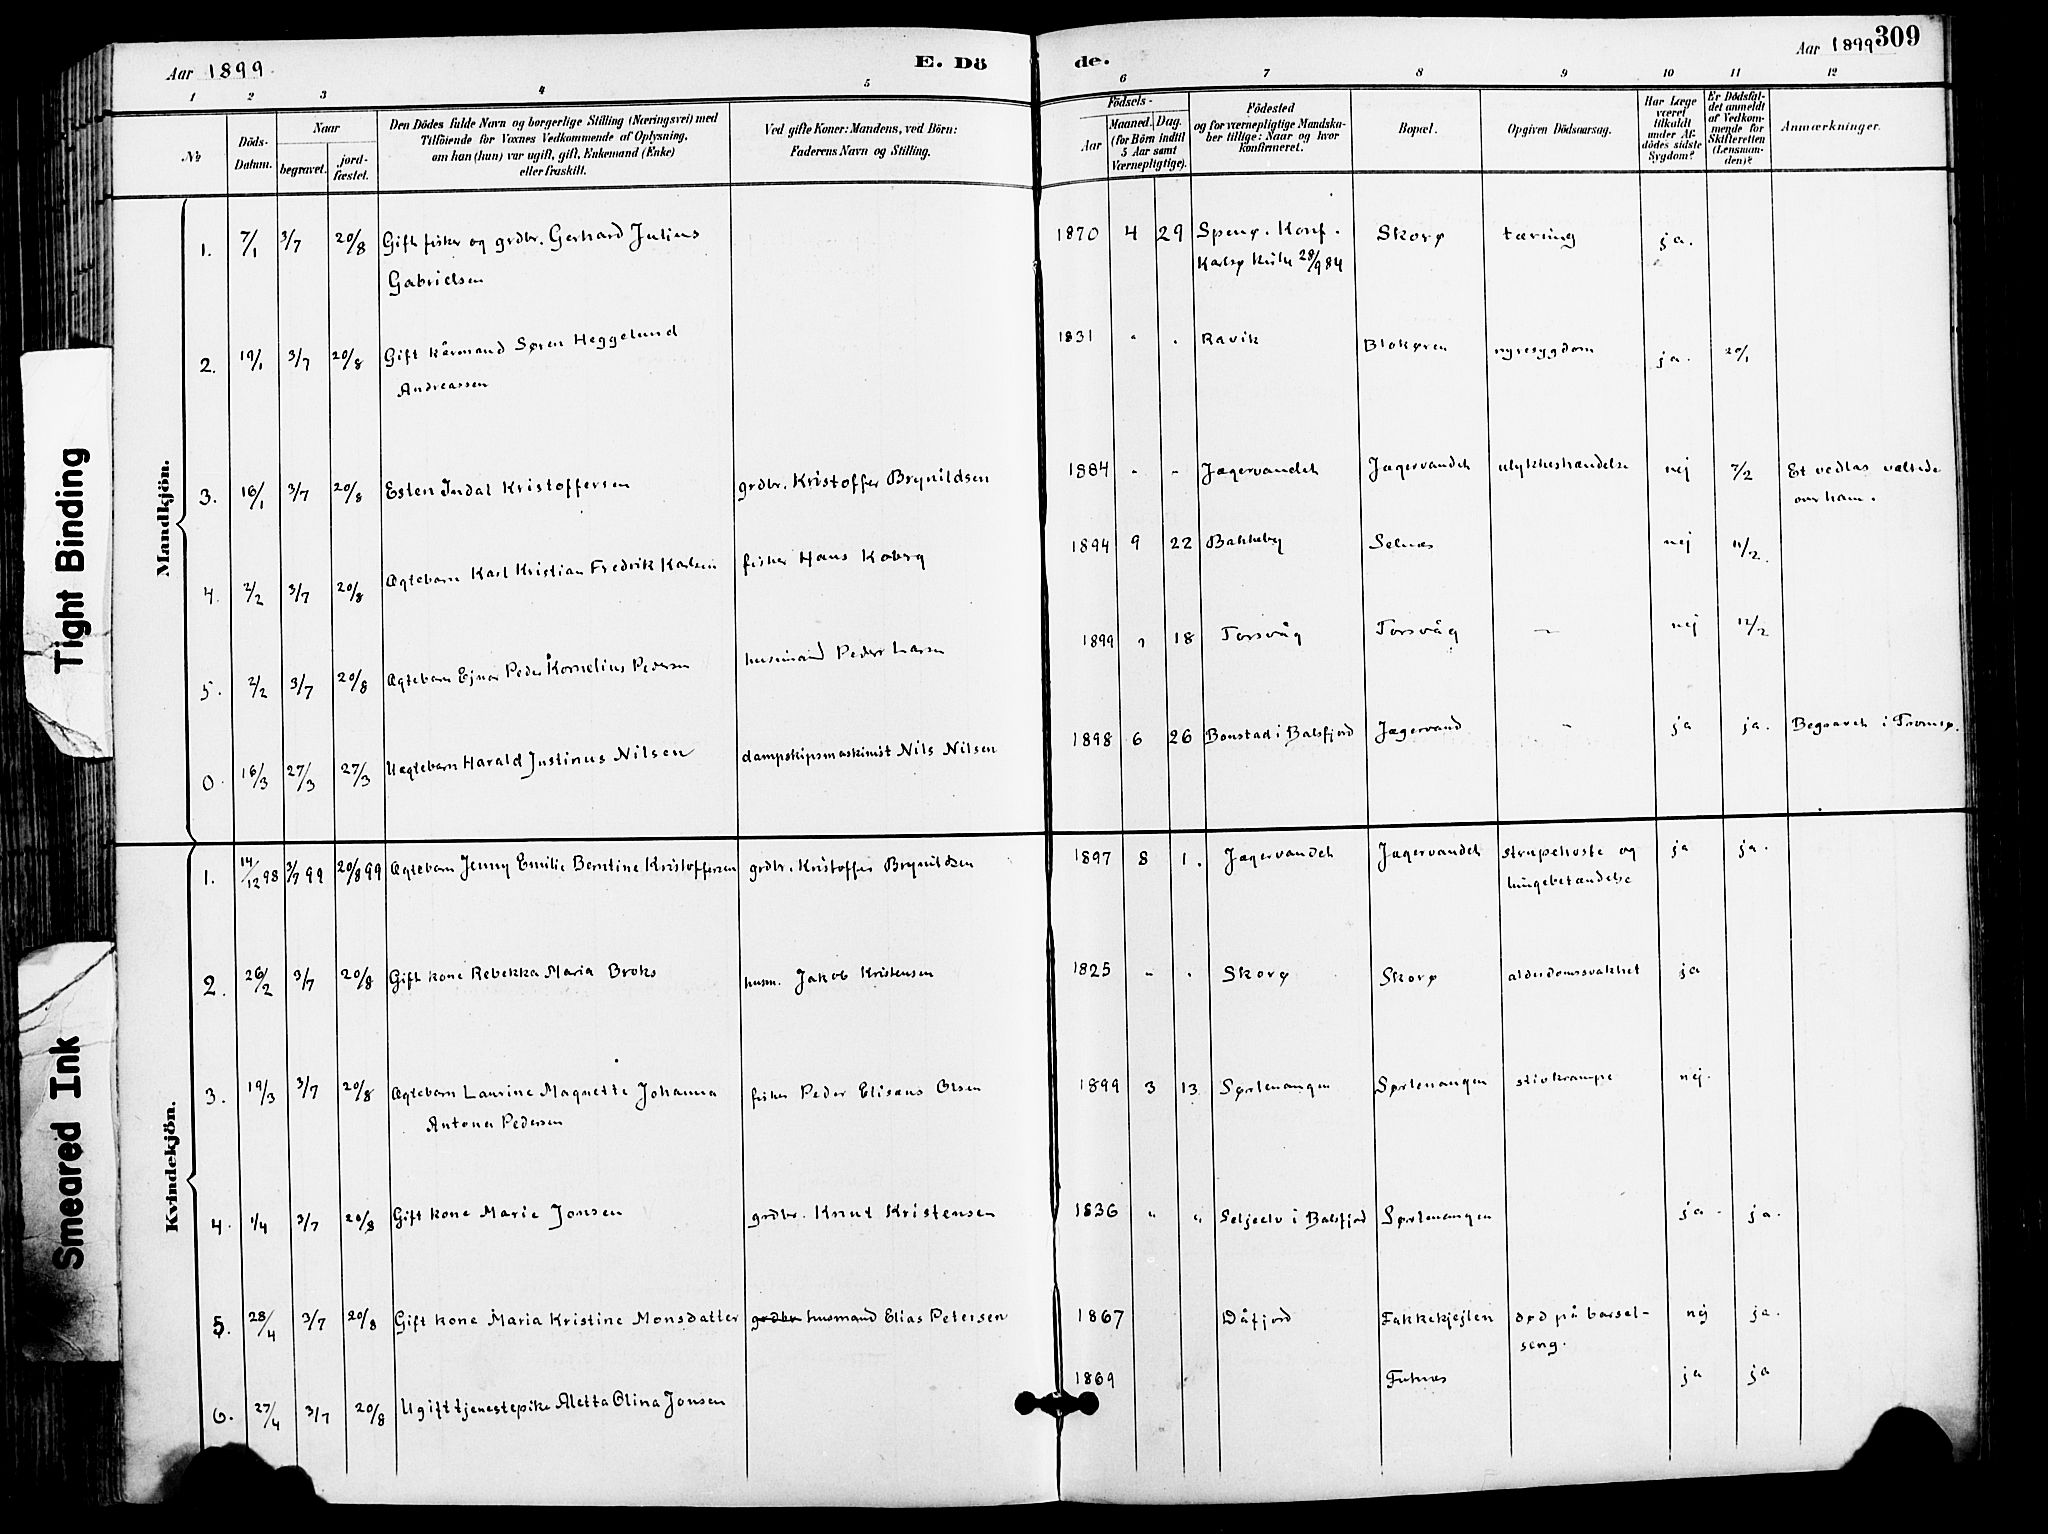 Aar 1899.
E. Dö
de.
Aar 1899
309
1 2 3 4 5 6 7 8 9 10 11 12
№
Döds-
Datum.
Naar
begravet.
jord-
fæstet.
Den Dödes fulde Navn og borgerlige Stilling (Næringsvei) med
Tilföiende for Voxnes Vedkommende af Oplysning,
om han (hun) var ugift, gift, Enkemand (Enke)
eller fraskilt.
Ved gifte Koner: Mandens, ved Börn:
Faderens Navn og Stilling.
Födsels-
Aar
Maaned. Dag.
(for Börn indtil
5 Aar samt
Værnepligtige).
Födested
og for værnepligtige Mandska-
ber tillige: Naar og hvor
konfirmeret.
Bopæl.
Opgiven Dödsaarsag.
Har Læge
været
tilkaldt
under Af-
dödes sidste
Sygdom?
Er Dödsfal-
det anmeldt
af Vedkom-
mende for
Skifteretten
(Lensman-
den)?
Anmærkninger.
Mandkjön.
1. 7/1 3/7 20/8 Gift fisker og grdbr. Gerhard Julius 1870 4 29 Spenø. Konf. Skorø tæring ja.
Gabrielsen Karlsø kirke 28/9 84
2. 19/1 3/7 20/8 Gift kårmand Søren Heggelund 1831 " " Ravik Blokøren nyresygdom ja. 20/1
Andreassen
3. 16/1 3/7 20/8 Eslen Indal Kristoffersen grdbr. Kristoffer Brynildsen 1884 - - Jægervandet Jægervandet ulykkeshændelse nej 7/2 Et vedlas væltede
over ham.
4. 2/2 3/7 20/8 Ægtebarn Karl Kristian Fredrik Karlsen fisker Hans Koberg 1894 9 22 Bakkeby Selnæs nej 11/2.
5. 2/2 3/7 20/8 Ægtebarn Ejnar Peder Kornelius Pedersen husmand Peder Larsen 1899 " 18 Torsvåg Torsvåg — nej 12/2
0. 16/3 27/3 27/3 Uægtebarn Harald Justinus Nilsen dampskipsmaskinist Nils Nilsen 1898 6 26 Bonstad i Balsfjord Jægervand - ja ja. Begravet i Tromsø.
Kvindekjön.
1. 14/12 98 3/7 99 20/8 99 Ægtebarn Jenny Emilie Berntine Kristoffersen grdbr. Kristoffer Brynildsen 1897 8 1. Jægervandet Jægervandet strupehoste og ja ja.
lungebetændelse
2. 26/2 3/7 20/8 Gift kone Rebekka Maria Broks husm. Jakob Kristensen 1825 - " Skorø Skorø alderdomssvakhet ja
3. 19/3 3/7 20/8 Ægtebarn Laurine Magnette Johanna fisker Peder Elisæus Olsen 1899 3 13 Sørlenangen Sørlenangen stivkrampe nej.
Antona Pedersen
4. 1/4 3/7 20/8 Gift kone Marie Jonsen grdbr. Knut Kristensen 1836 " " Seljeelv i Balsfjord Sørlenangen ja. ja.
5. 28/4 3/7 20/8 Gift kone Maria Kristine Monsdatter grdbr husmand Elias Petersen 1867 Dåfjord Fakkekjejlen død på barsel- nej ja.
seng.
6. 27/4 3/7 20/8 Ugift tjenestepike Aletta Olina Jonsen 1869 Futnæs ja ja
Tight Binding
Smeared Ink